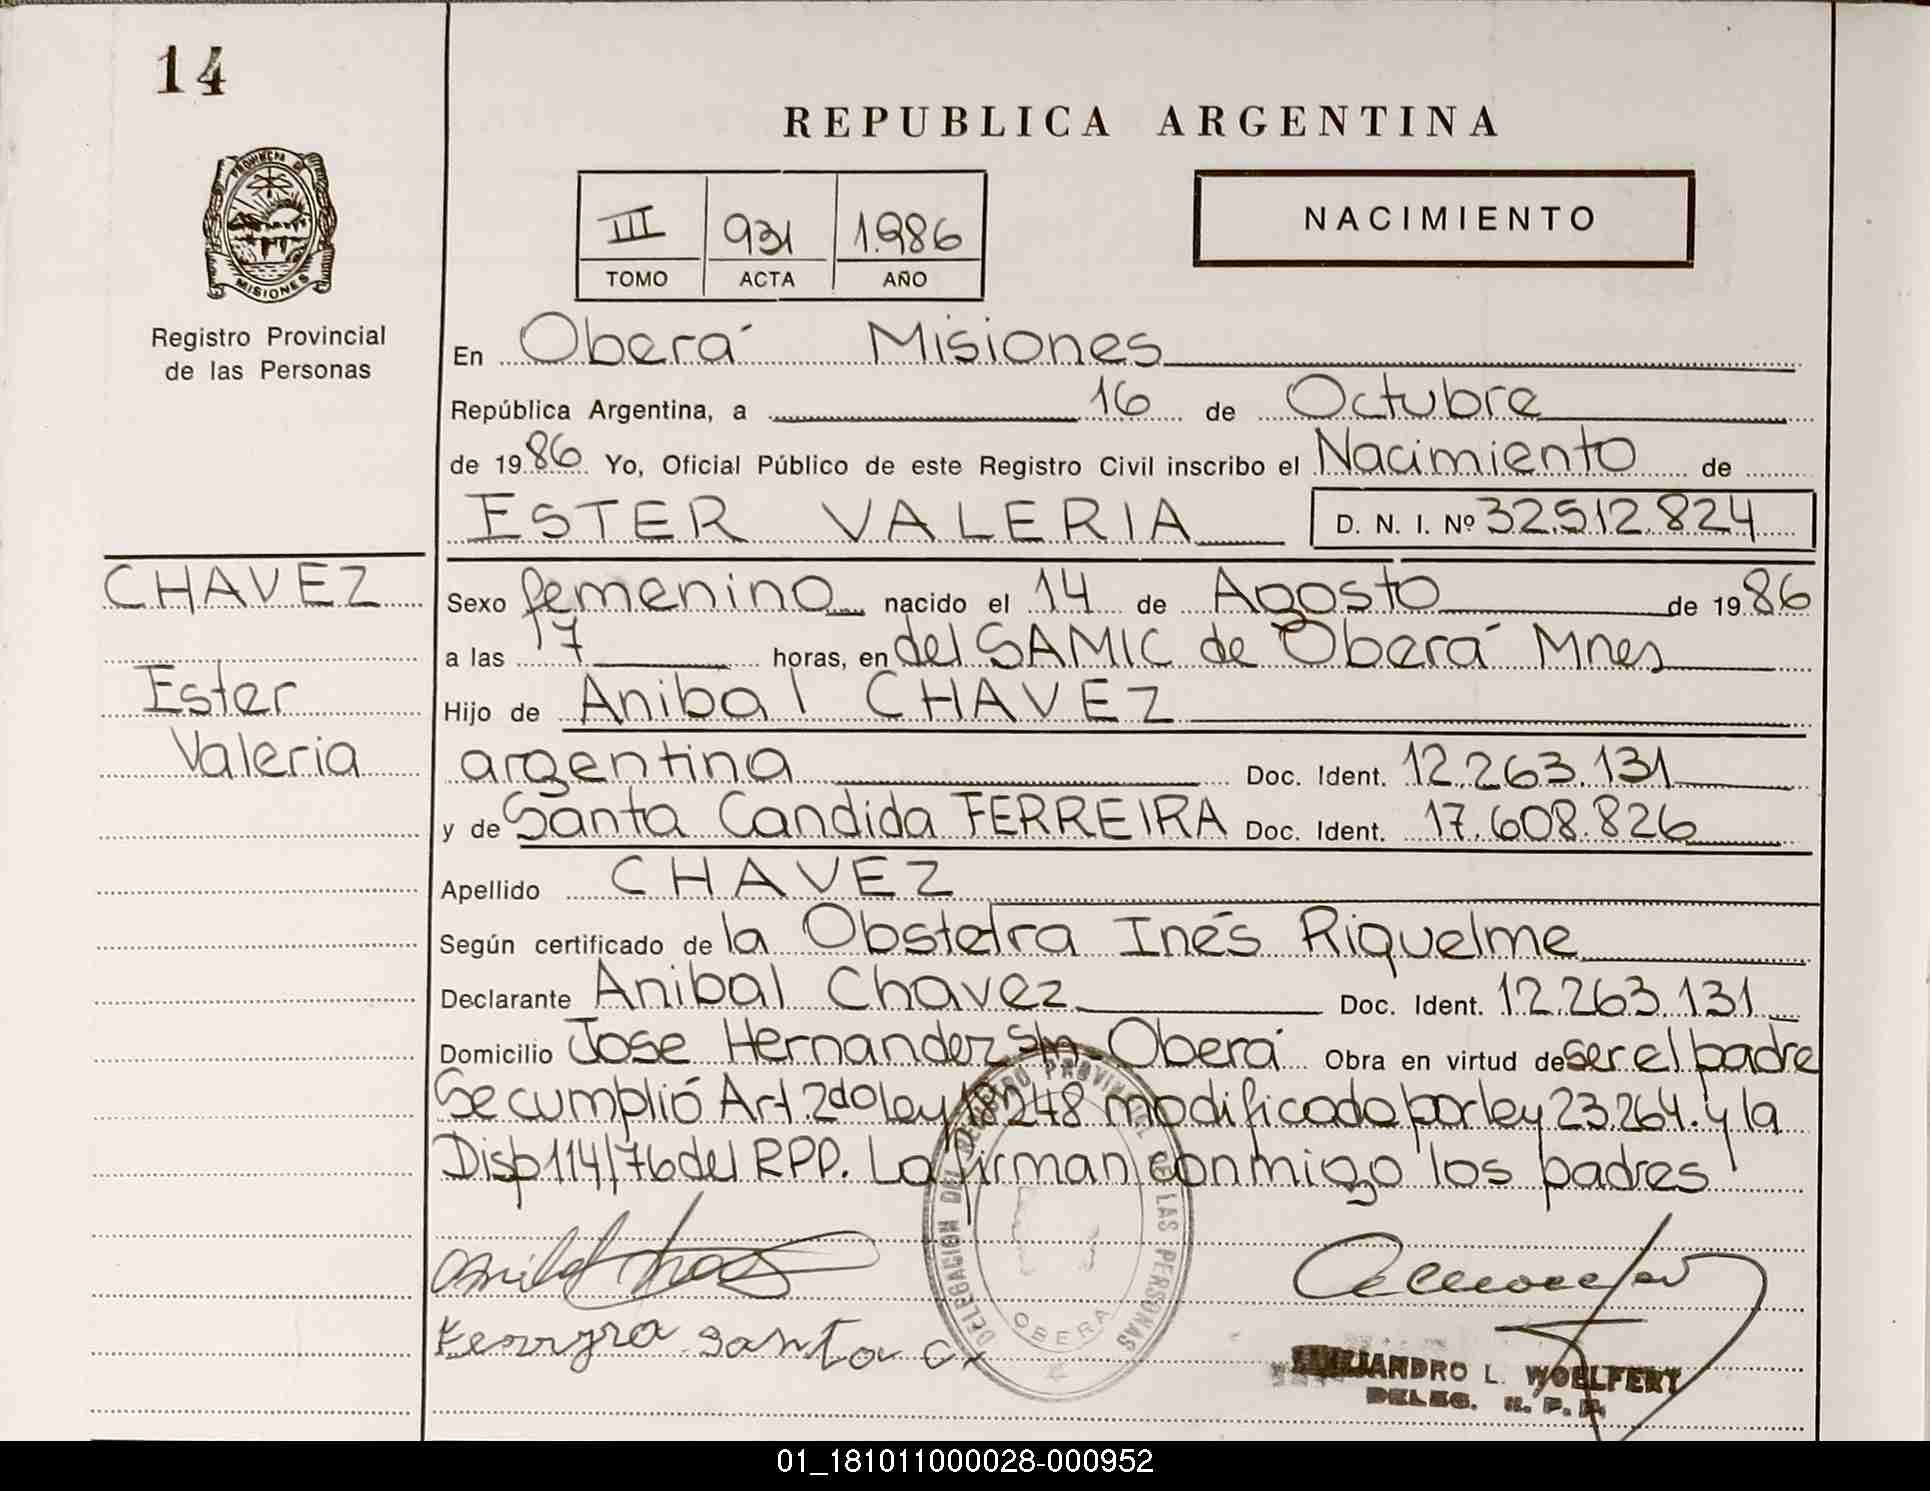 14
REPUBLICA ARGENTINA
PROVINCIA DE
MISIONES
Registro Provincial
de las Personas
III 931 1.986
TOMO ACTA AÑO
NACIMIENTO
En Oberá Misiones
República Argentina, a 16 de Octubre
de 1986 Yo, Oficial Público de este Registro Civil inscribo el Nacimiento de
ESTER VALERIA D. N. I. Nº 32.512.824
CHAVEZ
Ester
Valeria
Sexo femenino nacido el 14 de Agosto de 1986
a las 17 horas, en del SAMIC de Oberá Mnes
Hijo de Anibal CHAVEZ
argentina Doc. Ident. 12.263.131
y de Santa Candida FERREIRA Doc. Ident. 17.608.826
Apellido CHAVEZ
Según certificado de la Obstetra Inés Riquelme
Declarante Anibal Chavez Doc. Ident. 12.263.131
Domicilio Jose Hernandez s/n-Oberá Obra en virtud de ser el padre
Se cumplió Art. 2do ley 18.248 modificado por ley 23.264. y la
Disp 114/76 del RPP. La firman conmigo los padres
DELEGACION DEL REGISTRO PROVINCIAL DE LAS PERSONAS
OBERA
Santa C
L. WOELFERT
DELEG. R. P. P.
01_181011000028-000952